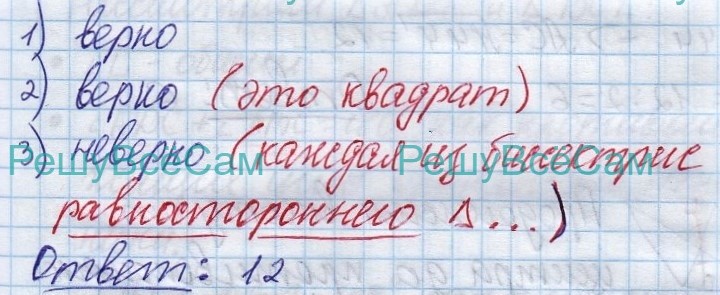 1) верно
2) верно (это квадрат)
3) неверно (каждая из биссектрис
РешуВсеСам РешуВсеСам
равностороннего Δ ...)
Ответ: 12